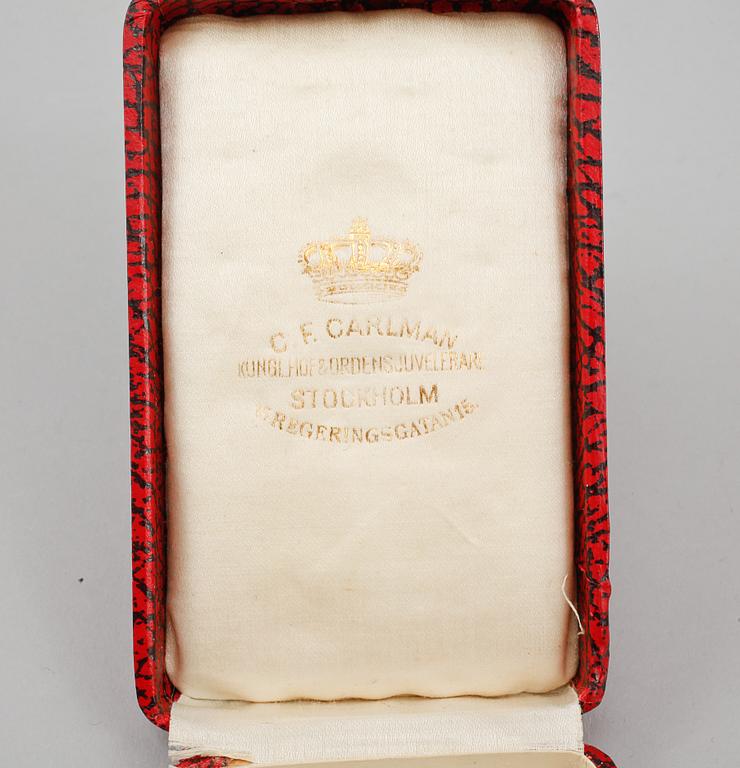 C. F. CARLMAN
KUNGL. HOF & ORDENSJUVELERARE
STOCKHOLM
REGERINGSGATAN 15.